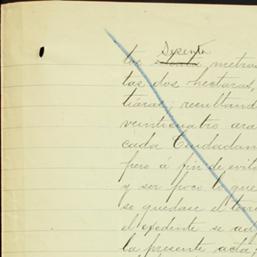 Desenta
los metros
tas dos hectaras,
tiáras; resultando
veinticuatro ara
cada Ciudadan
pero á fin de evita
y ser poco lo que
se quedase el terre
el expediente se ad
la presente acta;